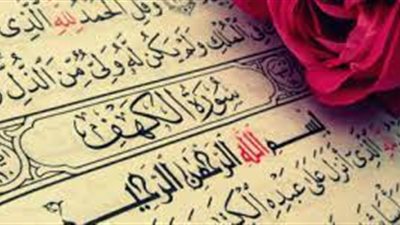 وَقُلِ الْحَمْدُ لِلَّهِ الَّذِي
فِي الْمُلْكِ وَلَمْ يَكُن لَّهُ وَلِيٌّ مِّنَ الذُّلِّ
سُورَةُ الْكَهْفِ
بِسْمِ اللَّهِ الرَّحْمَٰنِ الرَّحِيمِ
الَّذِي أَنزَلَ عَلَىٰ عَبْدِهِ الْكِتَابَ